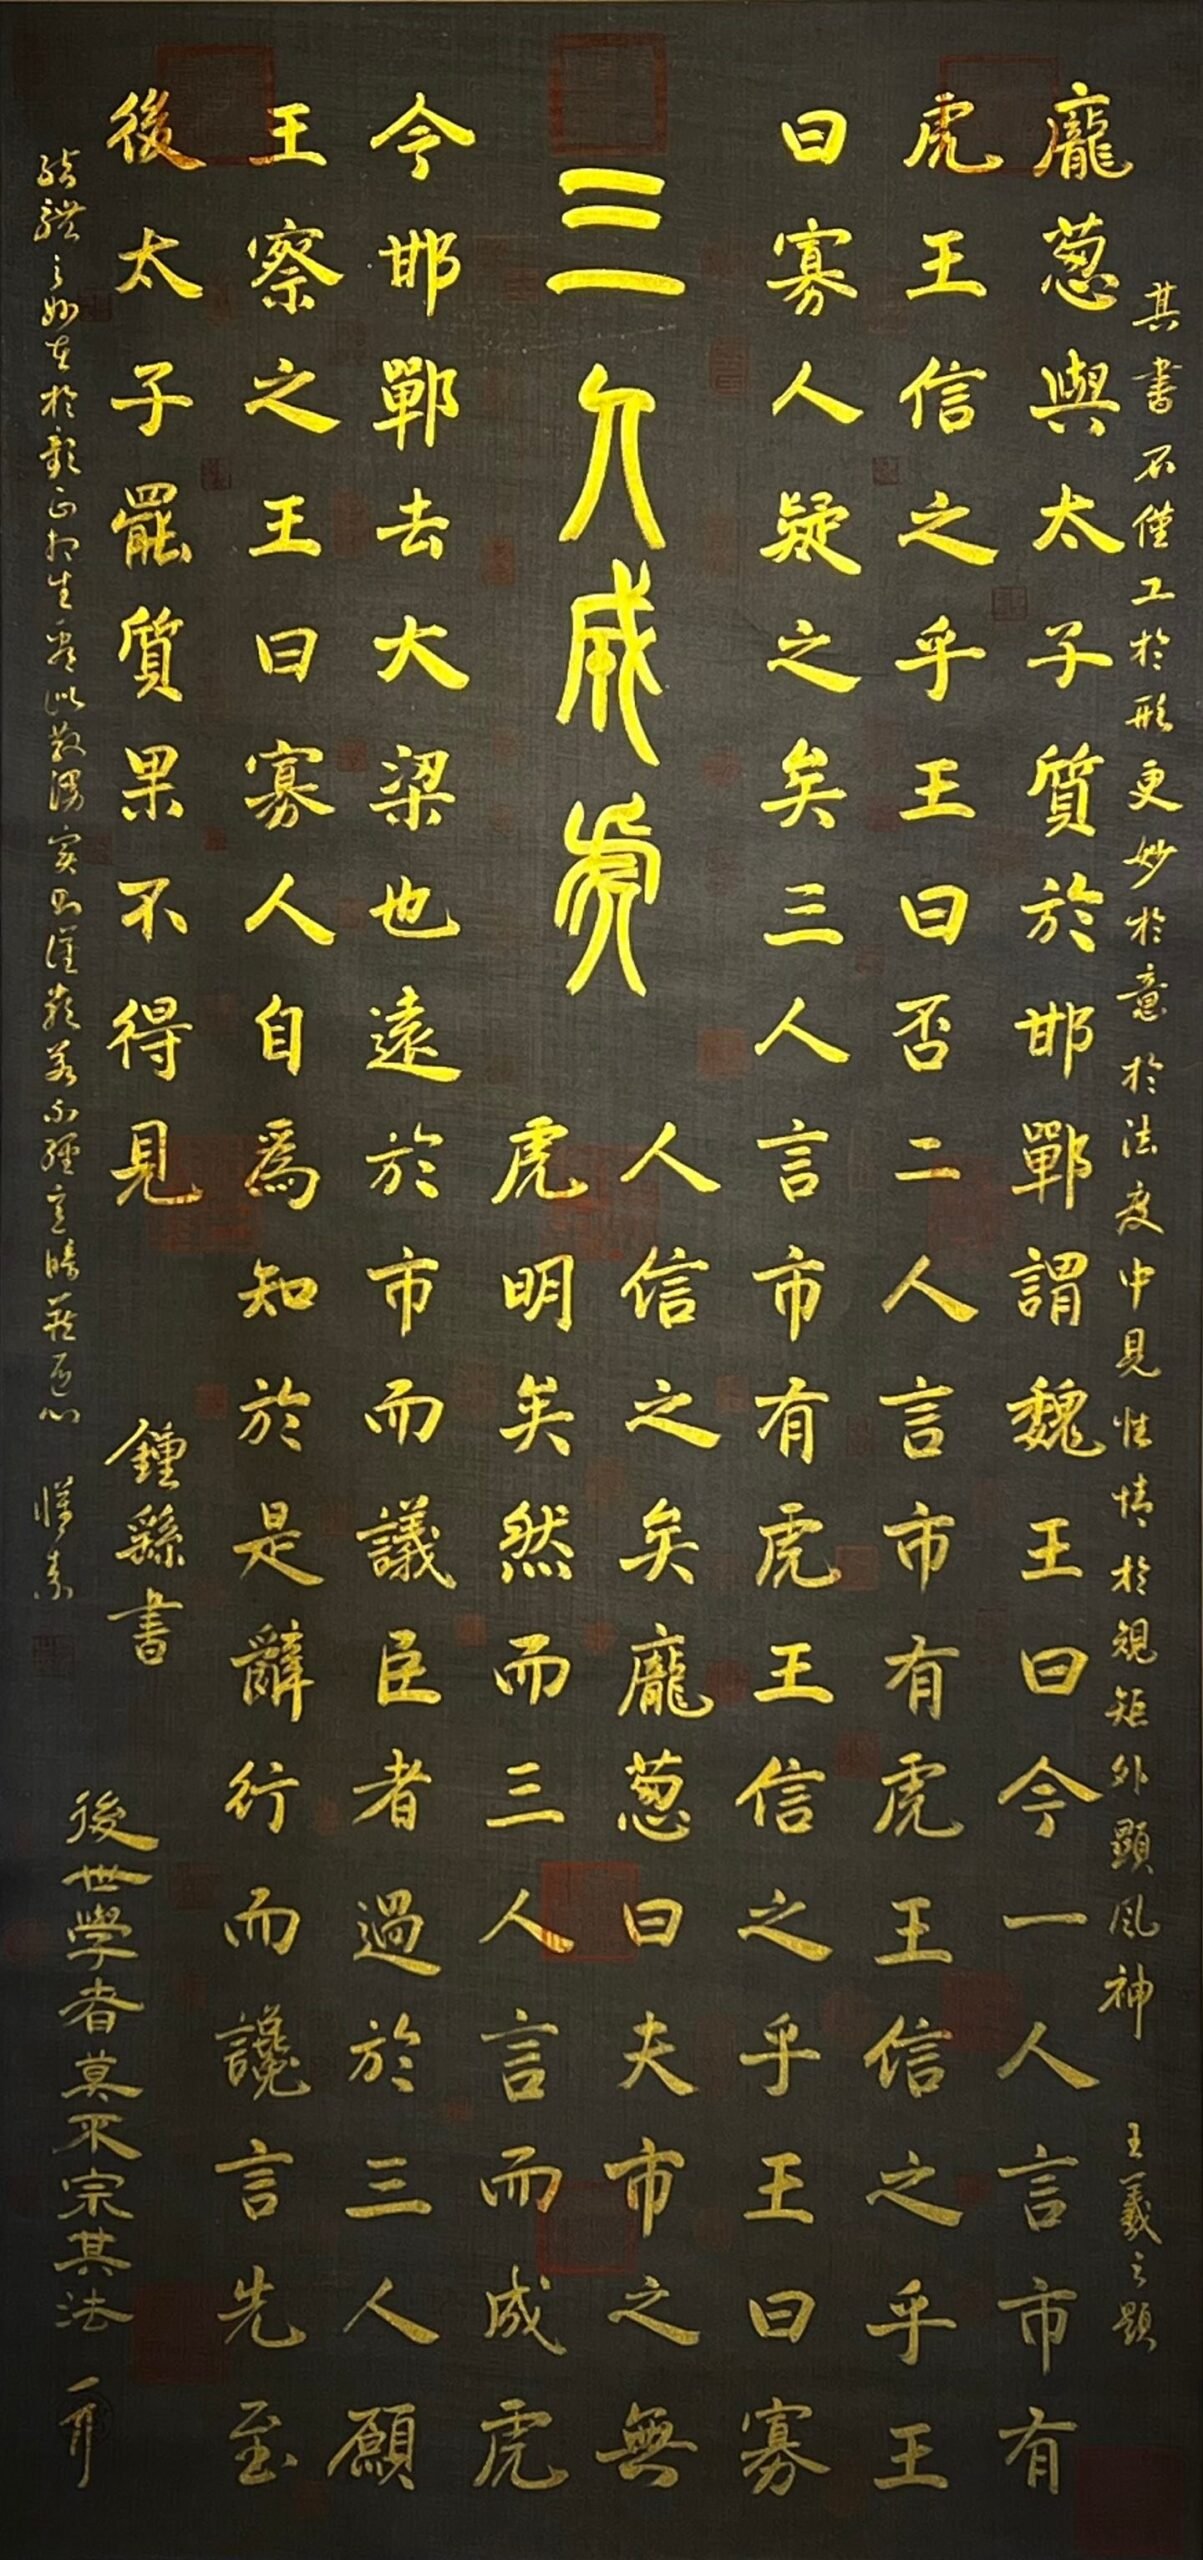 其書不僅工於形更妙於意於法度中見性情於規矩外顯風神 王羲之題
龐葱與太子質於邯鄲謂魏王曰今一人言市有
虎王信之乎王曰否二人言市有虎王信之乎王
曰寡人疑之矣三人言市有虎王信之乎王曰寡
三人成虎
人信之矣龐葱曰夫市之無
虎明矣然而三人言而成虎
今邯鄲去大梁也遠於市而議臣者過於三人願
王察之王曰寡人自爲知於是辭行而讒言先至
後太子罷質果不得見
鍾繇書
結體之妙在於欹正相生看似散漫實則謹嚴若不經意時藏匠心 懷素
後世學者莫不宗其法